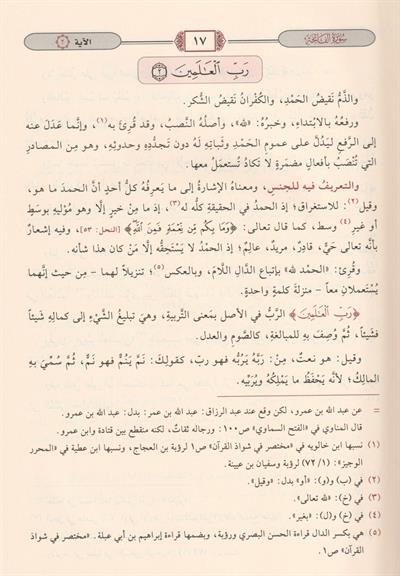 سورة الفاتحة
١٧
الآية ٢
رَبِّ ٱلْعَٰلَمِينَ ٢
والذَّمُّ نَقيضُ الحَمْدِ، والكُفْرانُ نَقيضُ الشُّكر.
ورفعُهُ بالابتداءِ، وخبرُهُ: «لله»، وأصلُهُ النَّصبُ، وقد قُرِئَ به(١)، وإنَّما عَدَلَ عنه
إلى الرَّفعِ ليَدُلَّ على عمومِ الحَمْدِ وثَباتِهِ لَهُ دونَ تَجدُّدِهِ وحدوثِهِ، وهو مِن المصادرِ
التي تُنْصَبُ بأفعالٍ مضمَرةٍ لا تَكادُ تُستعمَلُ معها.
والتَّعريفُ فيه للجنسِ، ومعناهُ الإشارةُ إلى ما يَعرِفُهُ كلُّ أحدٍ أنَّ الحمدَ ما هو،
وقيل(٢): للاستغراقِ؛ إذ الحمدُ في الحقيقةِ كلُّه له(٣)، إذ ما مِن خيرٍ إلَّا وهو مُوْليهِ بوسَطٍ
أو غيرِ(٤) وسط، كما قال تعالى: ﴿وَمَا بِكُم مِّن نِّعْمَةٍ فَمِنَ ٱللَّهِ﴾ [النحل: ٥٣]، وفيه إشعارٌ
بأنَّه تعالى حيٌّ، قادرٌ، مريدٌ، عالِمٌ؛ إذ الحمْدُ لا يَستَحِقُّه إلَّا مَن كان هذا شأنه.
وقُرِئ: «الحمدِ لله» بإتباعِ الدَّالِ اللَّامَ، وبالعكسِ(٥)؛ تنزيلاً لهما - مِن حيث إنَّهما
يُسْتَعملانِ معاً - منزلةَ كلمةٍ واحدةٍ.
﴿رَبِّ ٱلْعَٰلَمِينَ﴾ الرَّبُّ في الأصلِ بمَعنى التَّربيةِ، وهيَ تبليغُ الشَّيْءِ إلى كمالِهِ شَيئاً
فشَيئاً، ثُمَّ وُصِفَ بهِ للمبالغةِ، كالصَّومِ والعدلِ.
وقيل: هو نعتٌ، مِنْ: رَبَّهُ يَرُبُّه فهو رَبٌّ، كقولِكَ: نَمَّ يَنُمُّ فهو نَمٌّ، ثُمَّ سُمِّيَ بهِ
المالِكُ؛ لأنَّه يَحْفَظُ ما يَمْلِكُهُ ويُرَبِّيهِ.
= عن عبد الله بن عمرو، لكن وقع عند عبد الرزاق: عبد الله بن عمر: بدل: عبد الله بن عمرو.
قال المناوي في «الفتح السماوي» ص١٠٠: ورجاله ثقات، لكنه منقطع بين قتادة وابن عمرو.
(١) نسبها ابن خالويه في «مختصر في شواذ القرآن» ص١ لرؤبة بن العجاج، ونسبها ابن عطية في «المحرر
الوجيز»: (١/ ٧٢) لرؤبة وسفيان بن عيينة.
(٢) في (ب) و(و): «أو» بدل: «وقيل».
(٣) في (خ): «لله تعالى».
(٤) في (خ) و(ل): «بغير».
(٥) هي بكسر الدال قراءة الحسن البصري ورؤبة، وبضمها قراءة إبراهيم بن أبي عبلة. «مختصر في شواذ
القرآن» ص١.